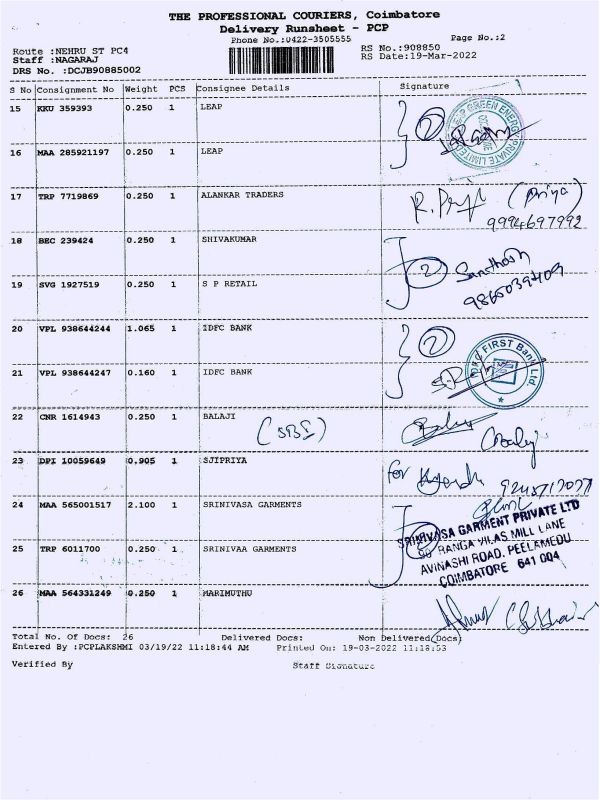 THE PROFESSIONAL COURIERS, Coimbatore
Delivery Runsheet - PCP
Phone No.:0422-3505555
Page No.:2
Route :NEHRU ST PC4
RS No.:908850
Staff :NAGARAJ
RS Date:19-Mar-2022
DRS No. :DCJB90885002
S No Consignment No Weight PCS Consignee Details Signature
15 KKU 359393 0.250 1 LEAP
2
16 MAA 285921197 0.250 1 LEAP
17 TRP 7719869 0.250 1 ALANKAR TRADERS
(Priya)
9994697992
18 BEC 239424 0.250 1 SHIVAKUMAR
2 Santhosh
19 SVG 1927519 0.250 1 S P RETAIL
9865039409
20 VPL 938644244 1.065 1 IDFC BANK
2
21 VPL 938644247 0.160 1 IDFC BANK
IDFC FIRST Bank Ltd
22 CNR 1614943 0.250 1 BALAJI
(SBI)
23 DPI 10059649 0.905 1 SJIPRIYA
for
24 MAA 565001517 2.100 1 SRINIVASA GARMENTS
SRINIVASA GARMENT PRIVATE LTD
RANGA VILAS MILL LANE
25 TRP 6011700 0.250 1 SRINIVAA GARMENTS
AVINASHI ROAD, PEELAMEDU
COIMBATORE 641 004
26 MAA 564331249 0.250 1 MARIMUTHU
Total No. Of Docs: 26 Delivered Docs: Non Delivered(Docs)
Entered By :PCPLAKSHMI 03/19/22 11:18:44 AM Printed On: 19-03-2022 11:18:53
Verified By Staff Signature